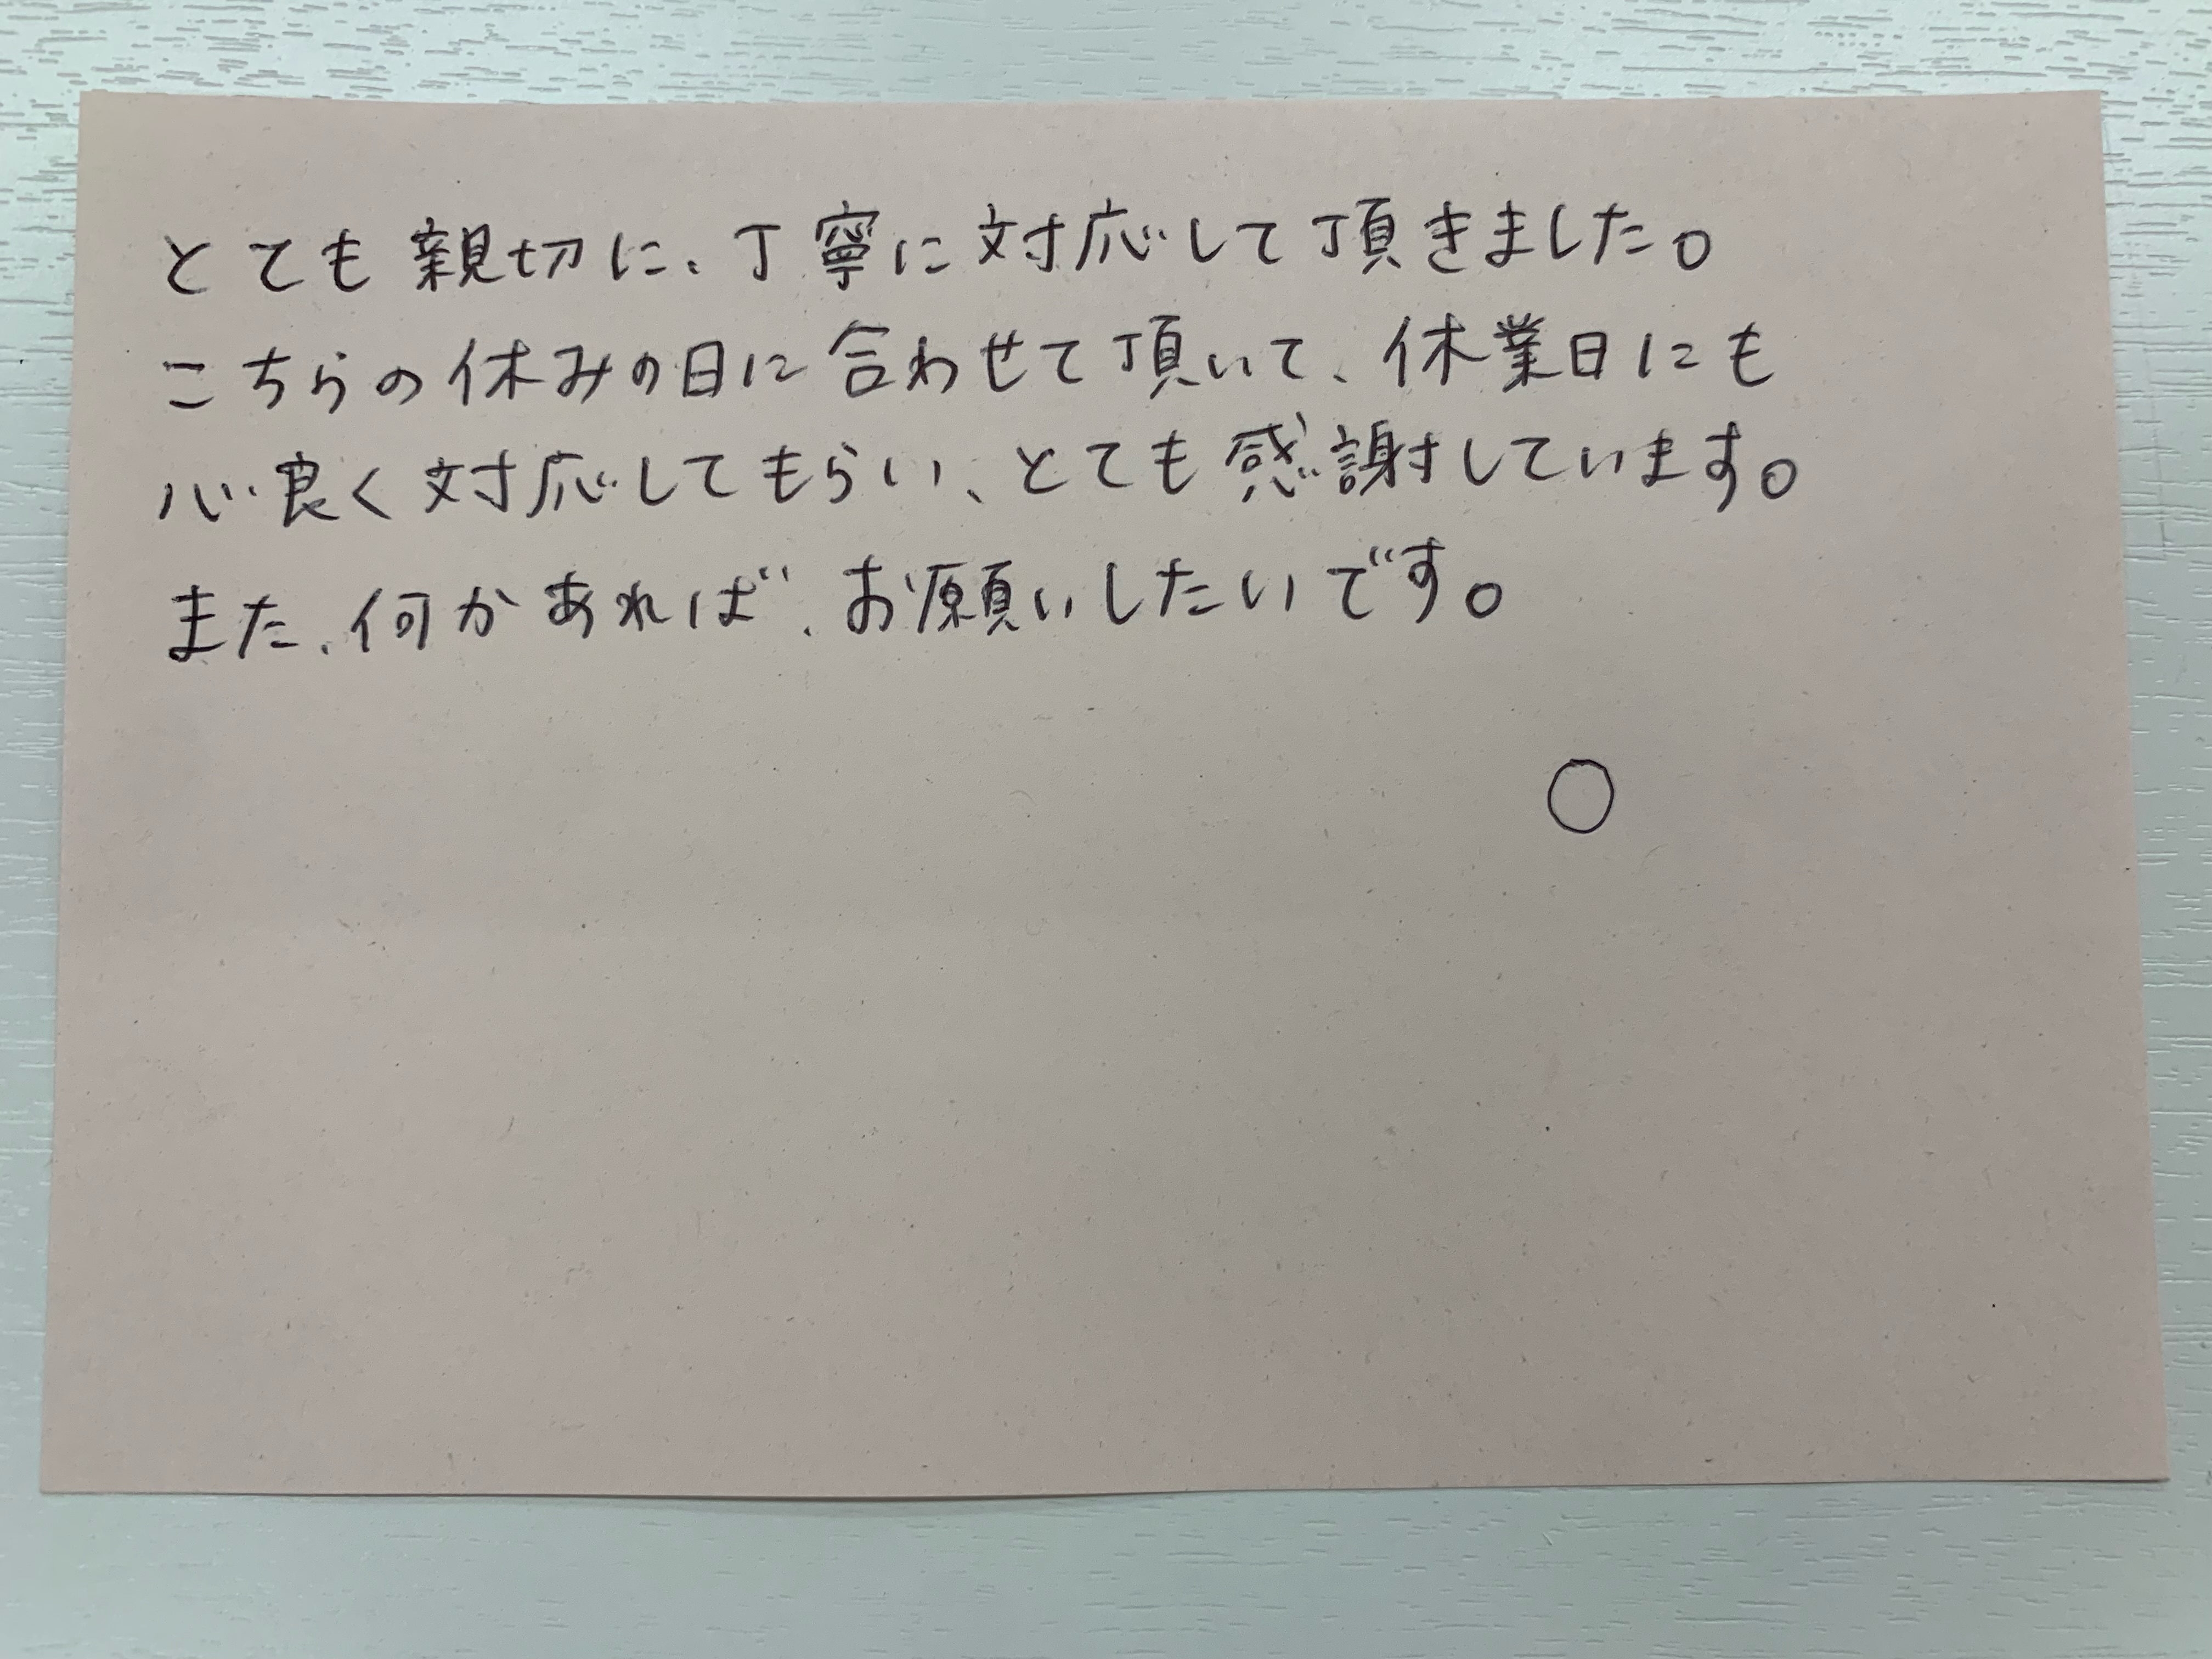 とても親切に、丁寧に対応して頂きました。
こちらの休みの日に合わせて頂いて、休業日にも
心良く対応してもらい、とても感謝しています。
また、何かあれば、お願いしたいです。
〇